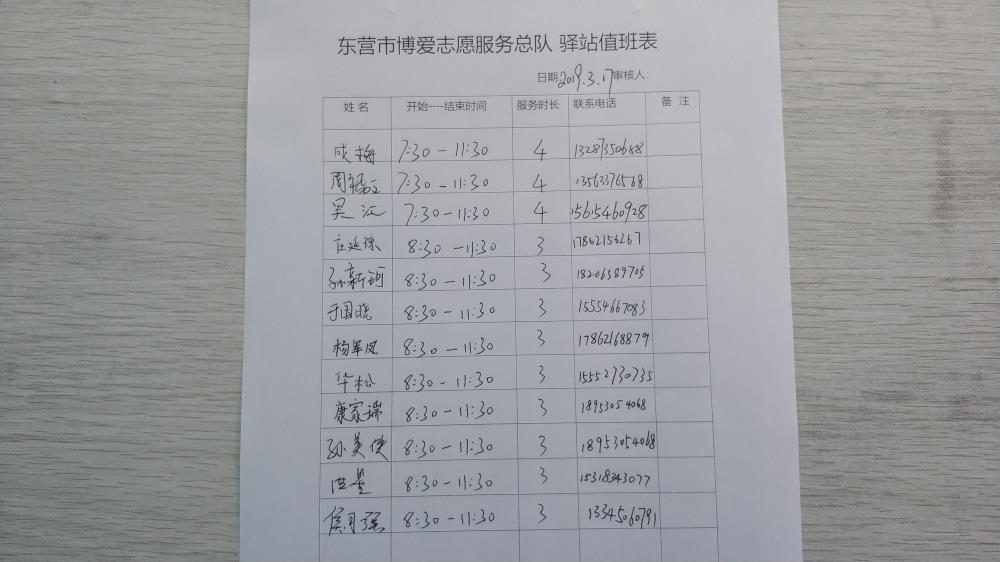 东营市博爱志愿服务总队 驿站值班表
日期2019.3.17审核人:
姓名 开始----结束时间 服务时长 联系电话 备 注
成梅 7:30-11:30 4 13287350688
周福文 7:30-11:30 4 13563376568
吴江 7:30-11:30 4 15615460928
8:30-11:30 3 17862156267
孙新珂 8:30-11:30 3 18206589705
于国晓 8:30-11:30 3 15554667083
杨军凤 8:30-11:30 3 17862168879
华松 8:30-11:30 3 15552730735
康家瑞 8:30-11:30 3 18953054068
孙美侠 8:30-11:30 3 18953054068
洪星 8:30-11:30 3 15318343077
侯月强 8:30-11:30 3 13345060791